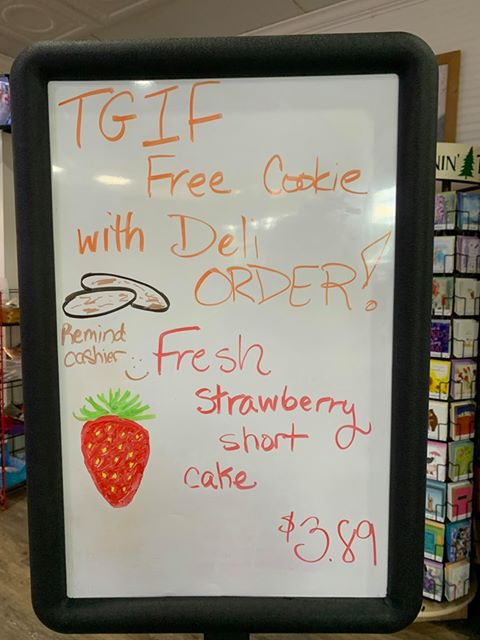 TGIF
Free Cookie
with Deli
ORDER!
Remind
cashier
Fresh
strawberry
short
cake
$3.89
NIN'